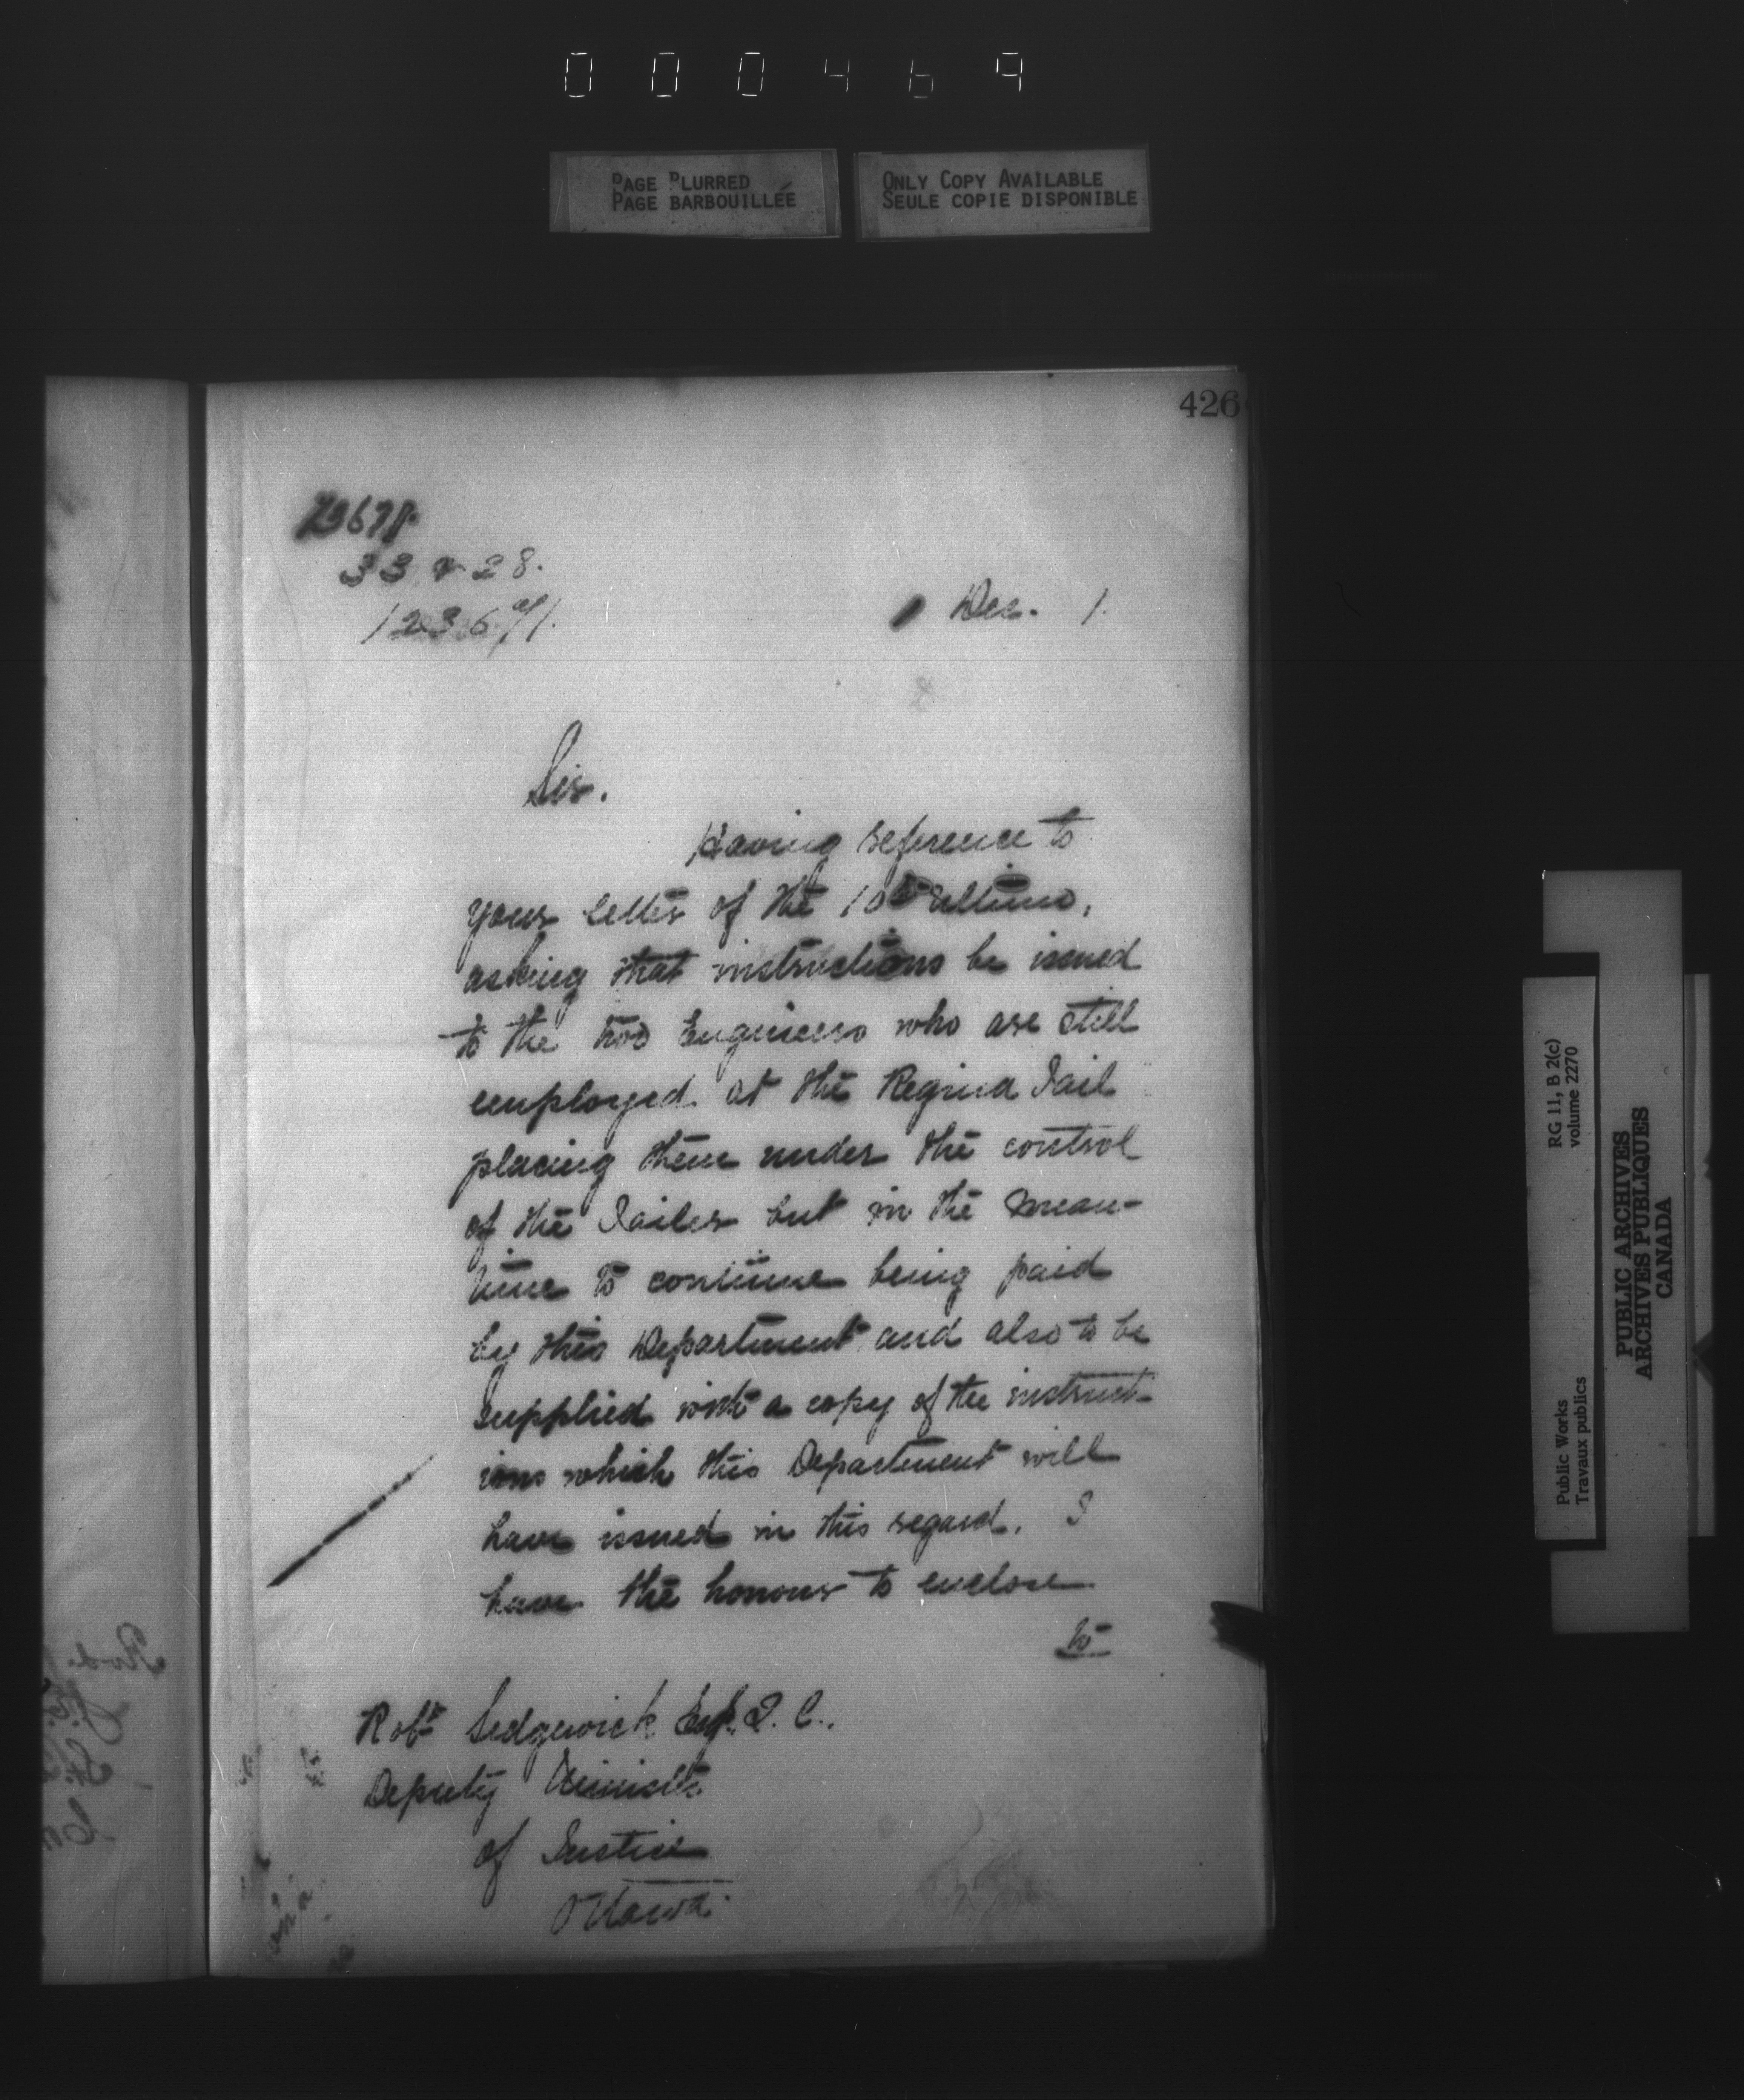 000469
PAGE BLURRED
PAGE BARBOUILLÉE
ONLY COPY AVAILABLE
SEULE COPIE DISPONIBLE
426
33 & 28.
Dec. 1.
Sir.
Having reference to
your letter of the 10th Ultimo,
asking that instructions be issued
to the two Engineers who are still
employed at the Regina Jail
placing them under the control
of the Jailer but in the mean-
time to continue being paid
by this Department and also to be
supplied with a copy of the instruct-
ions which this Department will
have issued in this regard. I
have the honour to enclose
to
Robt Sedgewick Esq. Q. C.,
Deputy Minister
of Justice
Ottawa.
RG 11, B 2(c)
volume 2270
Public Works
Travaux publics
PUBLIC ARCHIVES
ARCHIVES PUBLIQUES
CANADA